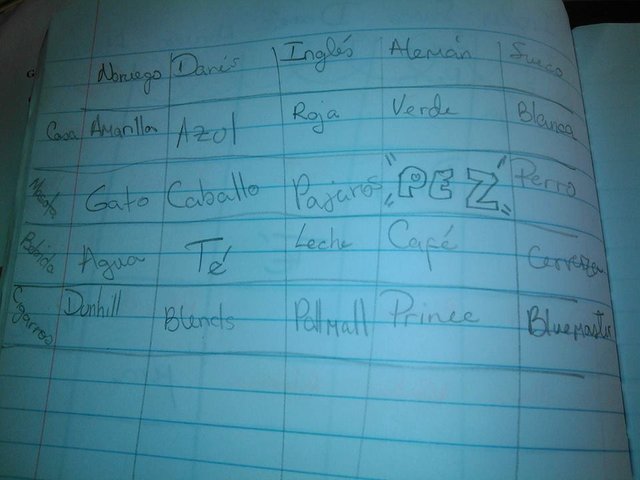 Noruego Danés Inglés Alemán Sueco
Casa Amarilla Azul Roja Verde Blanca
Mascota Gato Caballo Pajaros "PEZ" Perro
Bebida Agua Té Leche Café Cerveza
Cigarros Dunhill Blends Pall Mall Prince Bluemaster